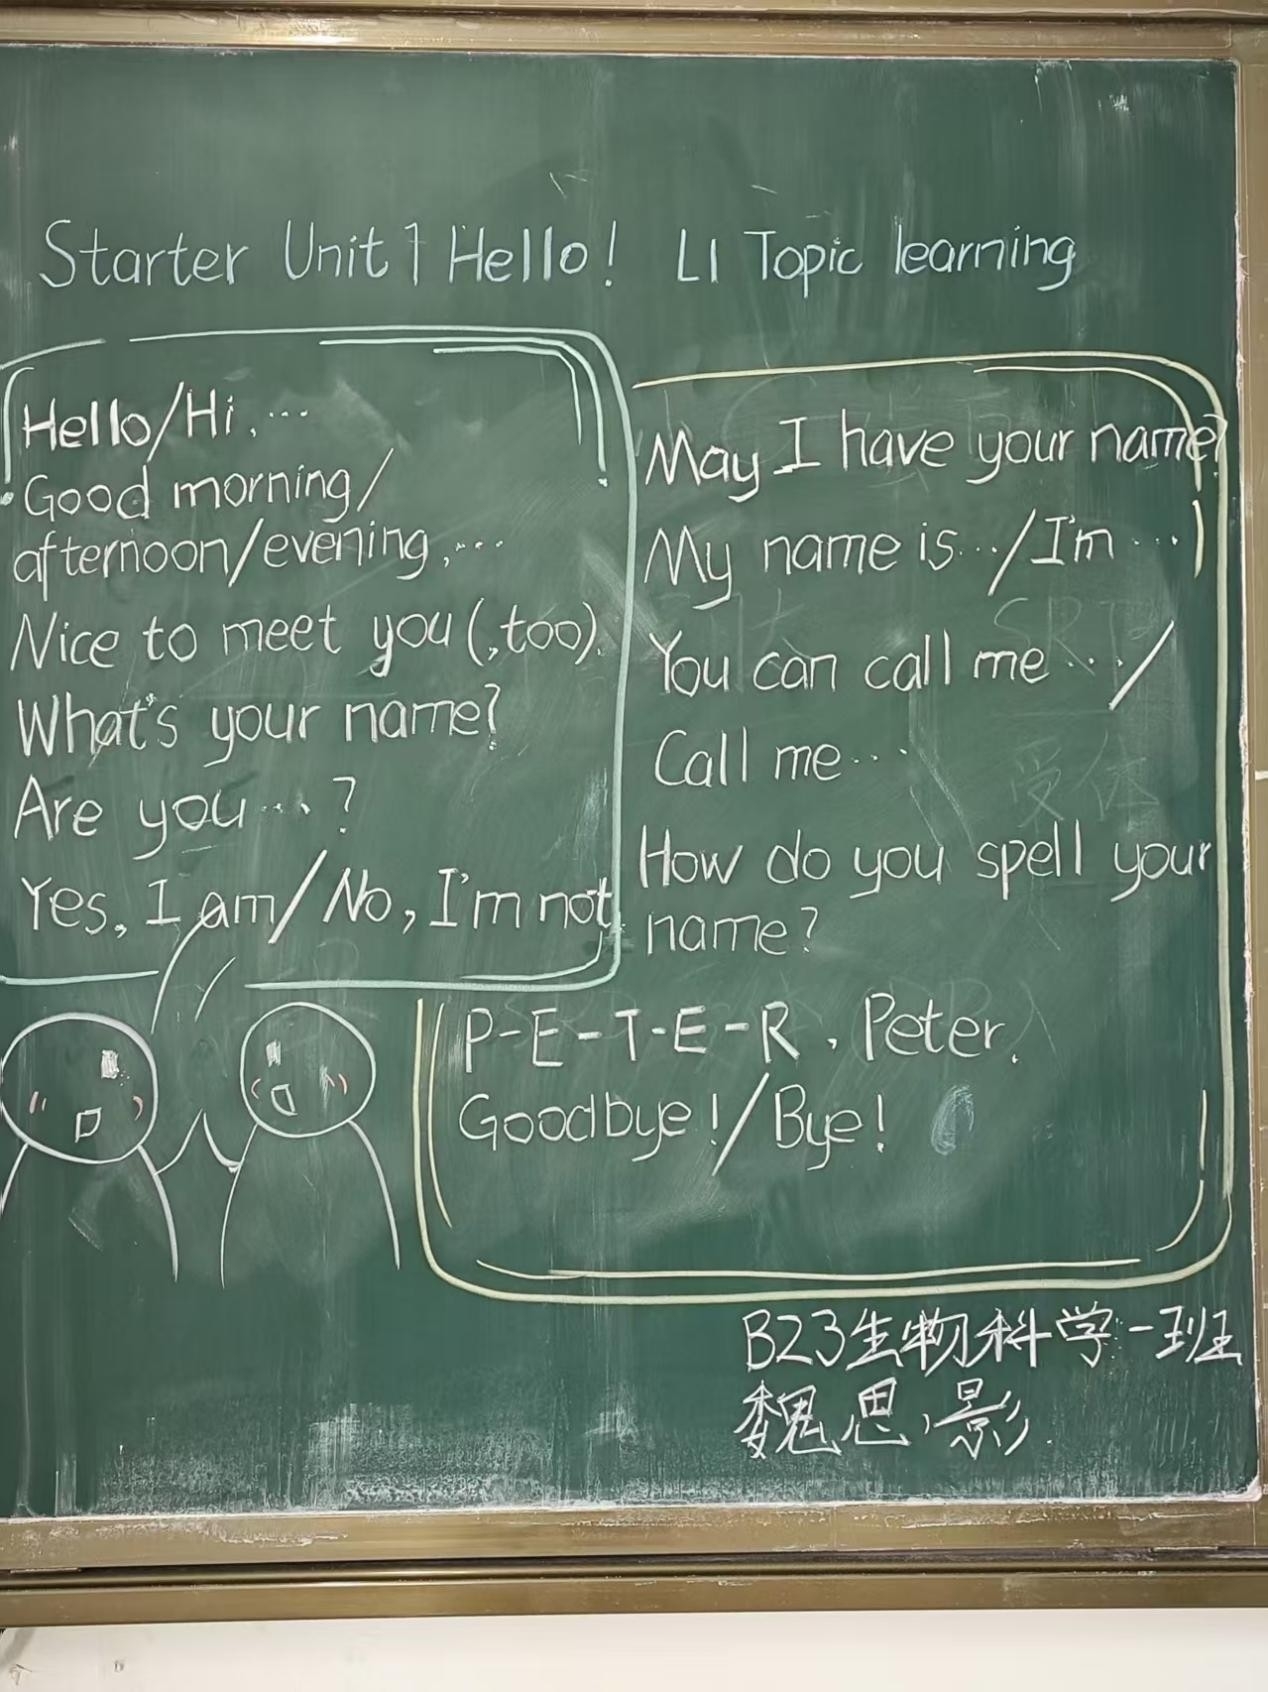 Starter Unit 1 Hello! L1 Topic learning
Hello/Hi, ...
Good morning/
afternoon/evening, ...
Nice to meet you(,too).
What's your name?
Are you ... ?
Yes, I am/No, I'm not.
May I have your name?
My name is .../I'm ...
You can call me .../
Call me ...
How do you spell your
name?
P-E-T-E-R, Peter.
Goodbye!/Bye!
B23生物科学一班
魏思影